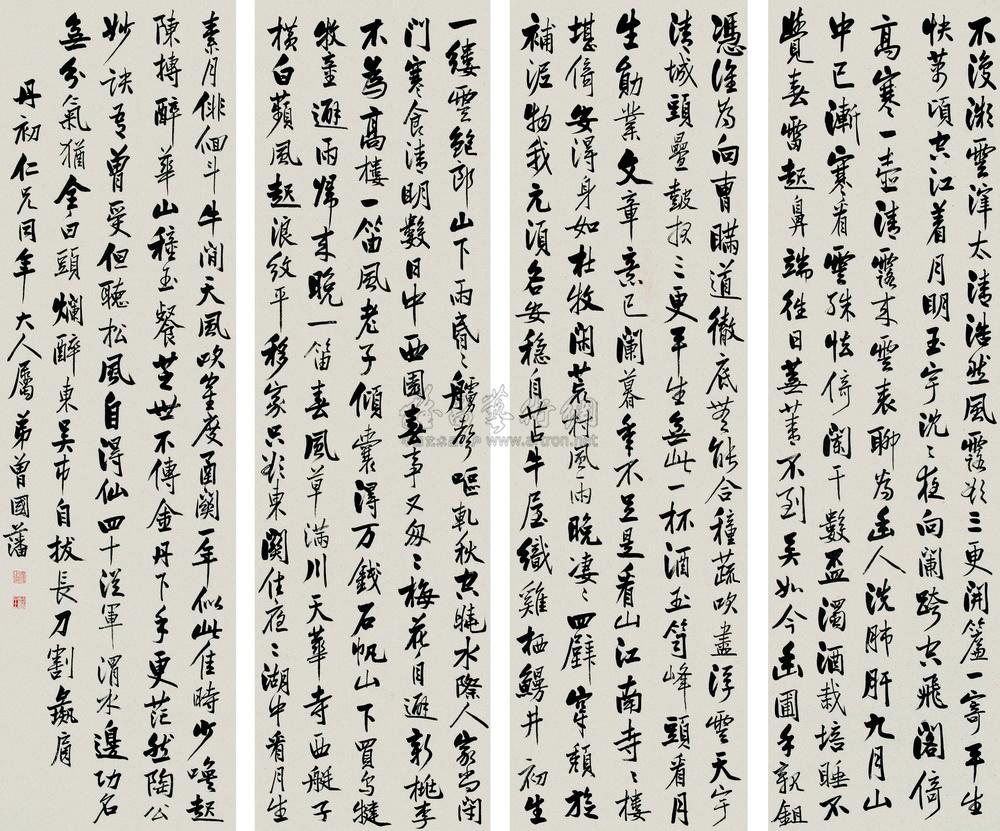 不復微雲滓太清浩然風露欲三更開簾一寄平生
快萬頃空江着月明玉宇沈〻夜向闌跨空飛閣倚
高寒一壺清露來雲表聊為幽人洗肺肝九月山
中已漸寒看雲殊怯倚闌干數盃濁酒栽培睡不
覺春雷起鼻端往日蕪菁不到吳如今幽圃手親鉏
憑誰為向曹瞞道徹底無能合種蔬吹盡浮雲天宇
清城頭疊鼓報三更平生無此一杯酒玉笥峰頭看月
生勛業文章意已闌暮年不足是看山江南寺〻樓
堪倚安得身如杜牧閑荒村風雨晚淒〻四壁穿頹旋
補泥物我元須各安穩自苫牛屋織雞栖鰻井初生
一縷雲鮑郎山下雨昏〻艫聲嘔軋秋空曉水際人家尚閉
門寒食清明數日中西園春事又匆〻梅花自避新桃李
不為高樓一笛風老子傾囊得万錢石帆山下買烏犍
牧童避雨歸來晚一笛春風草滿川天華寺西艇子
橫白蘋風起浪紋平移家只欲東關住夜〻湖中看月生
素月徘徊斗牛間天風吹笙度函關一年似此佳時少喚起
陳摶醉華山種玉餐芝世不傳金丹下手更茫然陶公
妙訣吾曾受但聽松風自得仙四十從軍渭水邊功名
無分氣猶全白頭爛醉東吳市自拔長刀割彘肩
丹初仁兄同年大人屬弟曾國藩
雅昌藝術網
www.artron.net